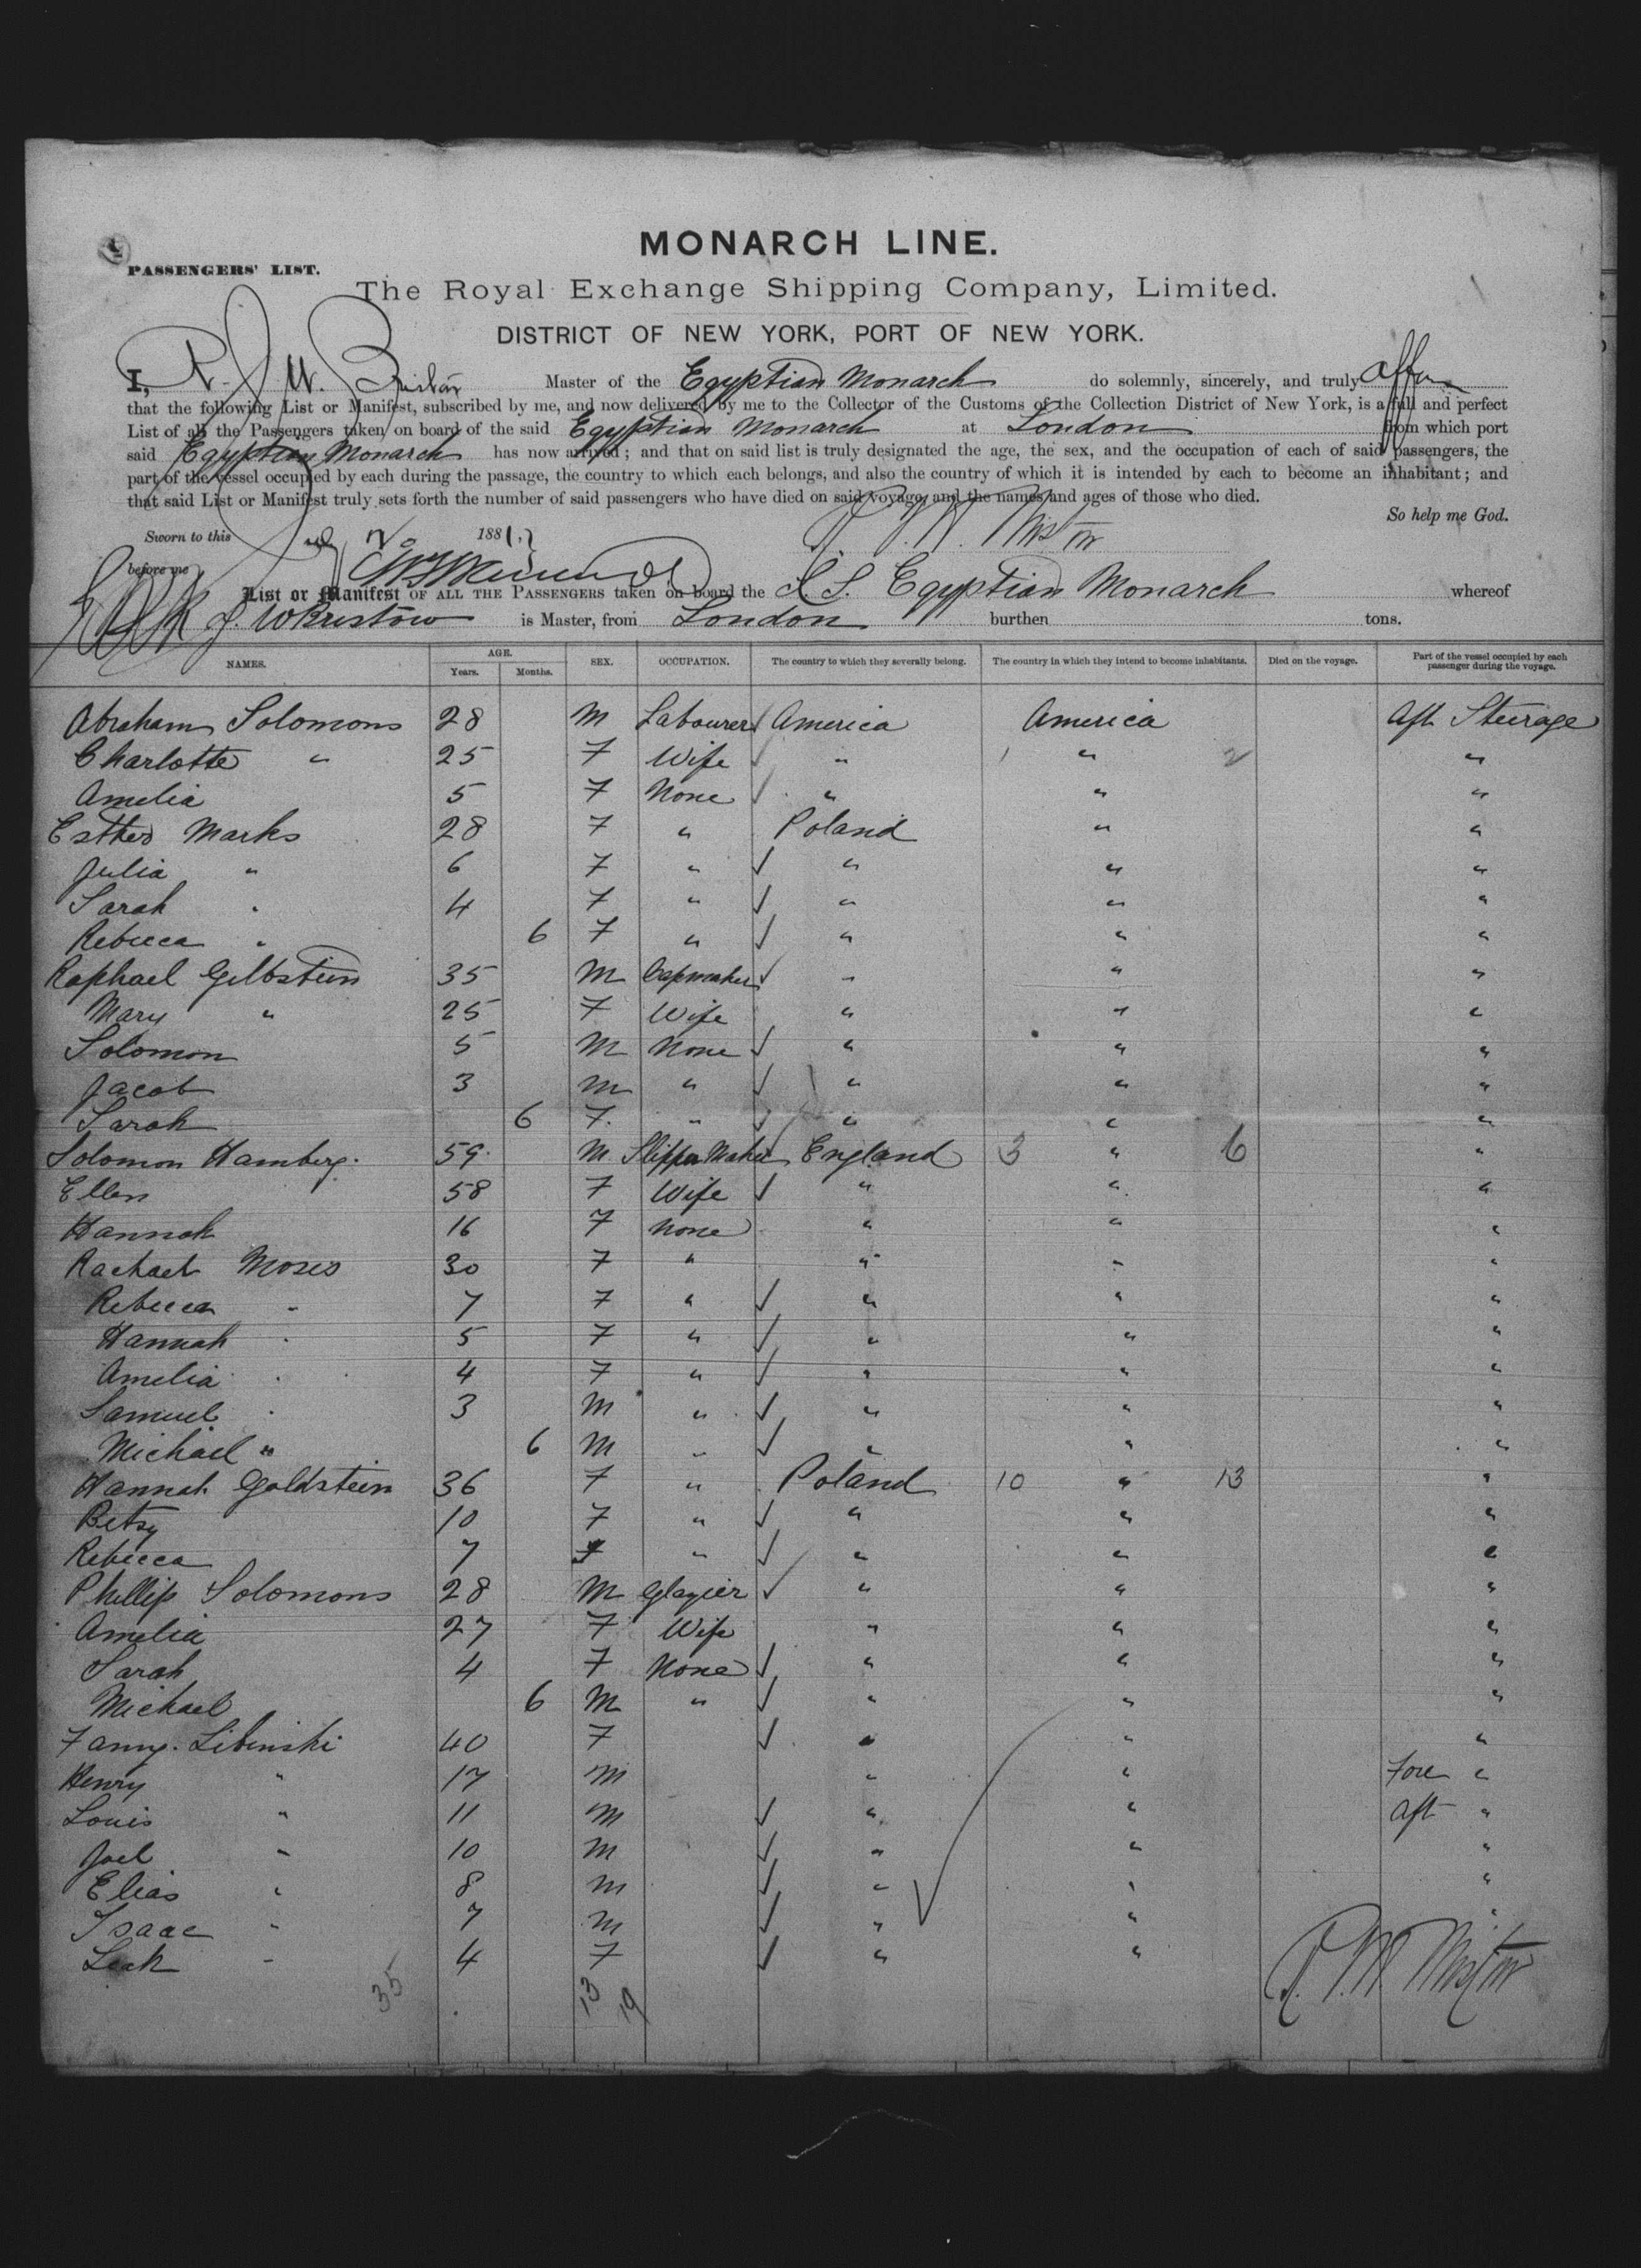 MONARCH LINE.
PASSENGERS' LIST.
The Royal Exchange Shipping Company, Limited.
DISTRICT OF NEW YORK, PORT OF NEW YORK.
I, R. J. W. Bristow Master of the Egyptian Monarch do solemnly, sincerely, and truly affirm
that the following List or Manifest, subscribed by me, and now delivered by me to the Collector of the Customs of the Collection District of New York, is a full and perfect
List of all the Passengers taken on board of the said Egyptian Monarch at London from which port
said Egyptian Monarch has now arrived; and that on said list is truly designated the age, the sex, and the occupation of each of said passengers, the
part of the vessel occupied by each during the passage, the country to which each belongs, and also the country of which it is intended by each to become an inhabitant; and
that said List or Manifest truly sets forth the number of said passengers who have died on said voyage, and the names and ages of those who died.
So help me God.
Sworn to this 188
before me
List or Manifest OF ALL THE PASSENGERS taken on board the S. S. Egyptian Monarch whereof
J. W Bristow is Master, from London burthen tons.
NAMES. AGE. Years. Months. SEX. OCCUPATION. The country to which they severally belong. The country in which they intend to become inhabitants. Died on the voyage. Part of the vessel occupied by each passenger during the voyage.
Abraham Solomons 28 M Labourer America America Aft Steerage
Charlotte " 25 F Wife " 1 " 2 "
Amelia 5 F None " " "
Esther Marks 28 F " Poland " "
Julia " 6 F " " " "
Sarah " 4 F " " " "
Rebecca " 6 F " " " "
Raphael Gelbstein 35 M Capmaker " " "
Mary " 25 F Wife " " "
Solomon 5 M None " " "
Jacob 3 M " " " "
Sarah 6 F. " " " "
Solomon Hamberg. 59 M Slipper Maker England 3 " 6 "
Ellen 58 F Wife " " "
Hannah 16 F None " " "
Rachael Moses 30 F " " " "
Rebecca " 7 F " " " "
Hannah " 5 F " " " "
Amelia " 4 F " " " "
Samuel " 3 M " " " "
Michael " 6 M " " " "
Hannah Goldstein 36 F " Poland 10 " 13 "
Betsy 10 F " " " "
Rebecca 7 F " " " "
Phillip Solomons 28 M Glazier " " "
Amelia 27 F Wife " " "
Sarah 4 F None " " "
Michael 6 M " " " "
Fanny. Libinski 40 F " " "
Henry " 17 M " " Fore "
Louis " 11 M " " Aft "
Joel " 10 M " " "
Elias " 8 M " " "
Isaac " 7 M " " "
Leah " 4 F " "
35 13 19